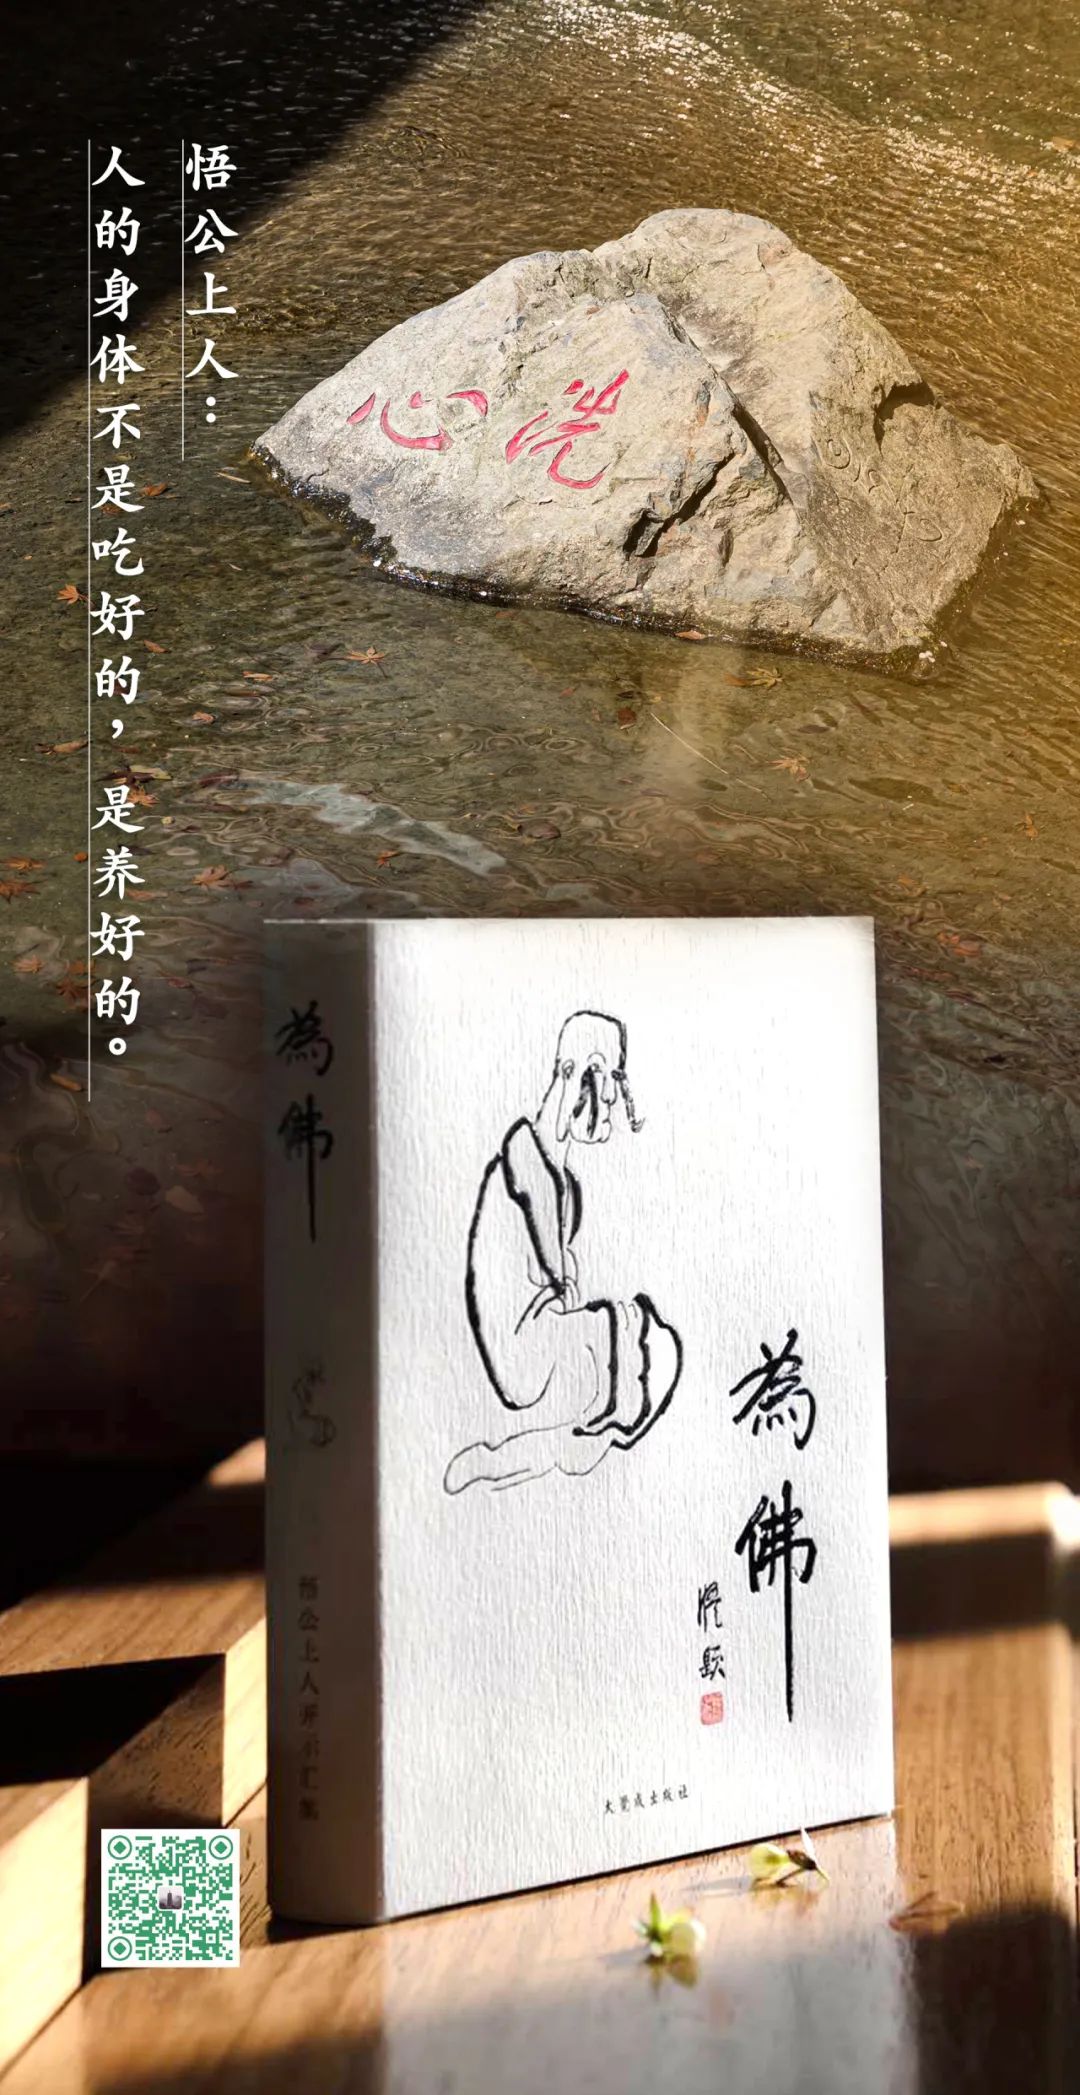 悟公上人：
人的身体不是吃好的，是养好的。
洗心
為佛
悟公上人开示汇集
為佛
大覺成出版社